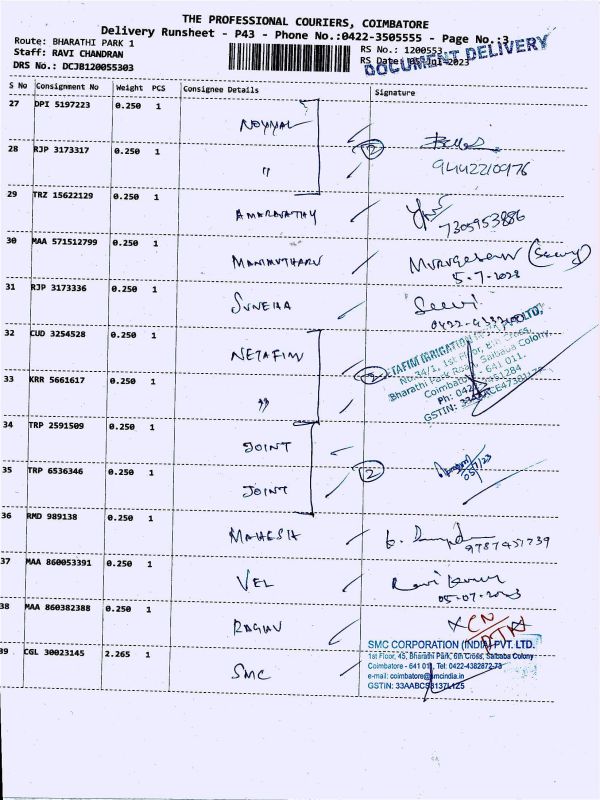 THE PROFESSIONAL COURIERS, COIMBATORE
Delivery Runsheet - P43 - Phone No.:0422-3505555 - Page No.:3
Route: BHARATHI PARK 1
RS No.: 1200553
Staff: RAVI CHANDRAN
RS Date: 05-Jul-2023
DOCUMENT DELIVERY
DRS No.: DCJB120055303
S No Consignment No Weight PCS Consignee Details Signature
27 DPI 5197223 0.250 1
NOYYAL
28 RJP 3173317 0.250 1
"
2
9442210976
29 TRZ 15622129 0.250 1
AMARAVATHY
7305953886
30 MAA 571512799 0.250 1
MANIMUTHARU
Murugesan
5.7.2023
31 RJP 3173336 0.250 1
SUNEHA
Selvi
32 CUD 3254528 0.250 1
NETAFIM
33 KRR 5661617 0.250 1
"
2
Bharathi Park Road, Saibaba Colony,
34 TRP 2591509 0.250 1
JOINT
35 TRP 6536346 0.250 1
JOINT
2
36 RMD 989138 0.250 1
MAHESH
9787451739
37 MAA 860053391 0.250 1
VEL
Ravi Kumar
05-07-2023
38 MAA 860382388 0.250 1
RAGHU
CN
39 CGL 30023145 2.265 1
SMC
SMC CORPORATION (INDIA) PVT. LTD.
1st Floor, 45, Bharathi Park, 6th Cross, Saibaba Colony
Coimbatore - 641 011, Tel: 0422-4382872-73
e-mail: coimbatore@smcindia.in
GSTIN: 33AABCS8137L1Z5